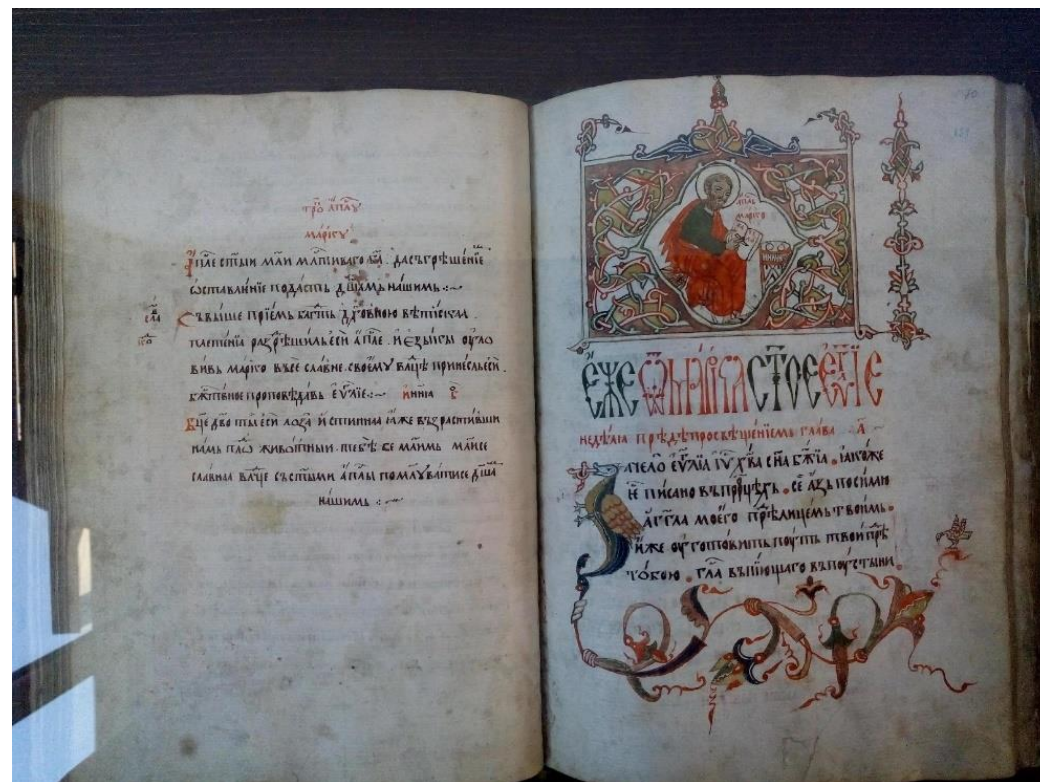 тро́ а҆п҃лꙋ
ма́ркꙋ
а҆п҃ле ст҃ыи мл҃и мл҃тиваго б҃а . да съгрѣше́нїе
ѡ҆ставле́нїе пода́сть дш҃амь на́шимь :~
сла
съвы́ше прїе́мь благⷣть дх҃о́вноую вѣтїи́скаа
ко
плете́нїа разрѣши́ль е҆сѝ а҆п҃ле . и҆ є҆зы́кы оу҆ло
ви́вь ма́рко въсе сла́вне . своемꙋ̀ влⷣцѣ прине́сль е҆сѝ .
бж҃тве́ное проповѣ́давь еѵⷢ҇лїе :~ и҆ нн҃ꙗ
бц҃е дв҃о ты̀ е҆сѝ лоза̀ и҆́стиннаа ꙗ҆́же възрасти́вши
на́мь пло́ⷣ живо́тныи тебѣ̀ се мл҃имь мл҃и се
сла́внаа влⷣчце съ ст҃ы́ми а҆п҃лы помл҃овати се дш҃а
на́шимь :~
а҆п҃ль
ма́рко
е҆́же ѿ ма́рка ст҃о́е е҆ѵⷢ҇лїе
недѣ́лꙗ прѣⷣ просвѣще́нїемь глава̀ а҃
Зачело еѵⷢ҇лїа і҆ѵ҃ х҃ва сн҃а бж҃їа . ꙗ҆́коже
є҆́ пи́сано въ прⷪ҇рцѣхь . се́ а҆́зь посилаю
а҆́гг҃ла моего̀ прѣⷣ лицемь твои́мь .
и҆́же оу҆гото́вить поу́ть тво́и прѣⷣ
тобо́ю . гла́ⷭ въпїю́щаго въ поу́стыни .